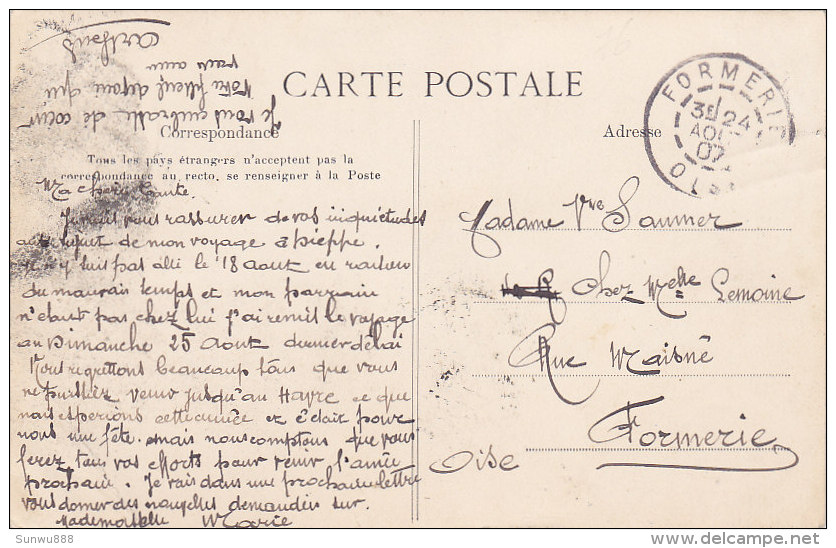 CARTE POSTALE
Correspondance
Adresse
Tous les pays étrangers n'acceptent pas la
correspondance au recto, se renseigner à la Poste
FORMERIE
3E/24
AOU
07
OISE
Ma chère tante.
Je vais vous rassurer de vos inquiétudes
au sujet de mon voyage à Dieppe.
Je n'y suis pas allé le 18 Aout en raison
du mauvais temps et mon parrain
n'étant pas chez lui j'ai remis le voyage
au Dimanche 25 Aout dernier délai
Nous regrettons beaucoup tous que vous
ne puissiez venir jusqu'au Havre ce que
nous espérions cette année et c'était pour
nous une fête. mais nous comptons que vous
ferez tous vos efforts pour venir l'année
prochaine. Je vais dans une prochaine lettre
vous donner des nouvelles demandées sur
Mademoiselle Marie
Je vous embrasse de coeur
Votre filleul dévoué qui
vous aime
Madame Vve Saunier
Chez Melle Lemoine
Rue Maisné
Formerie
Oise
Sunwu888